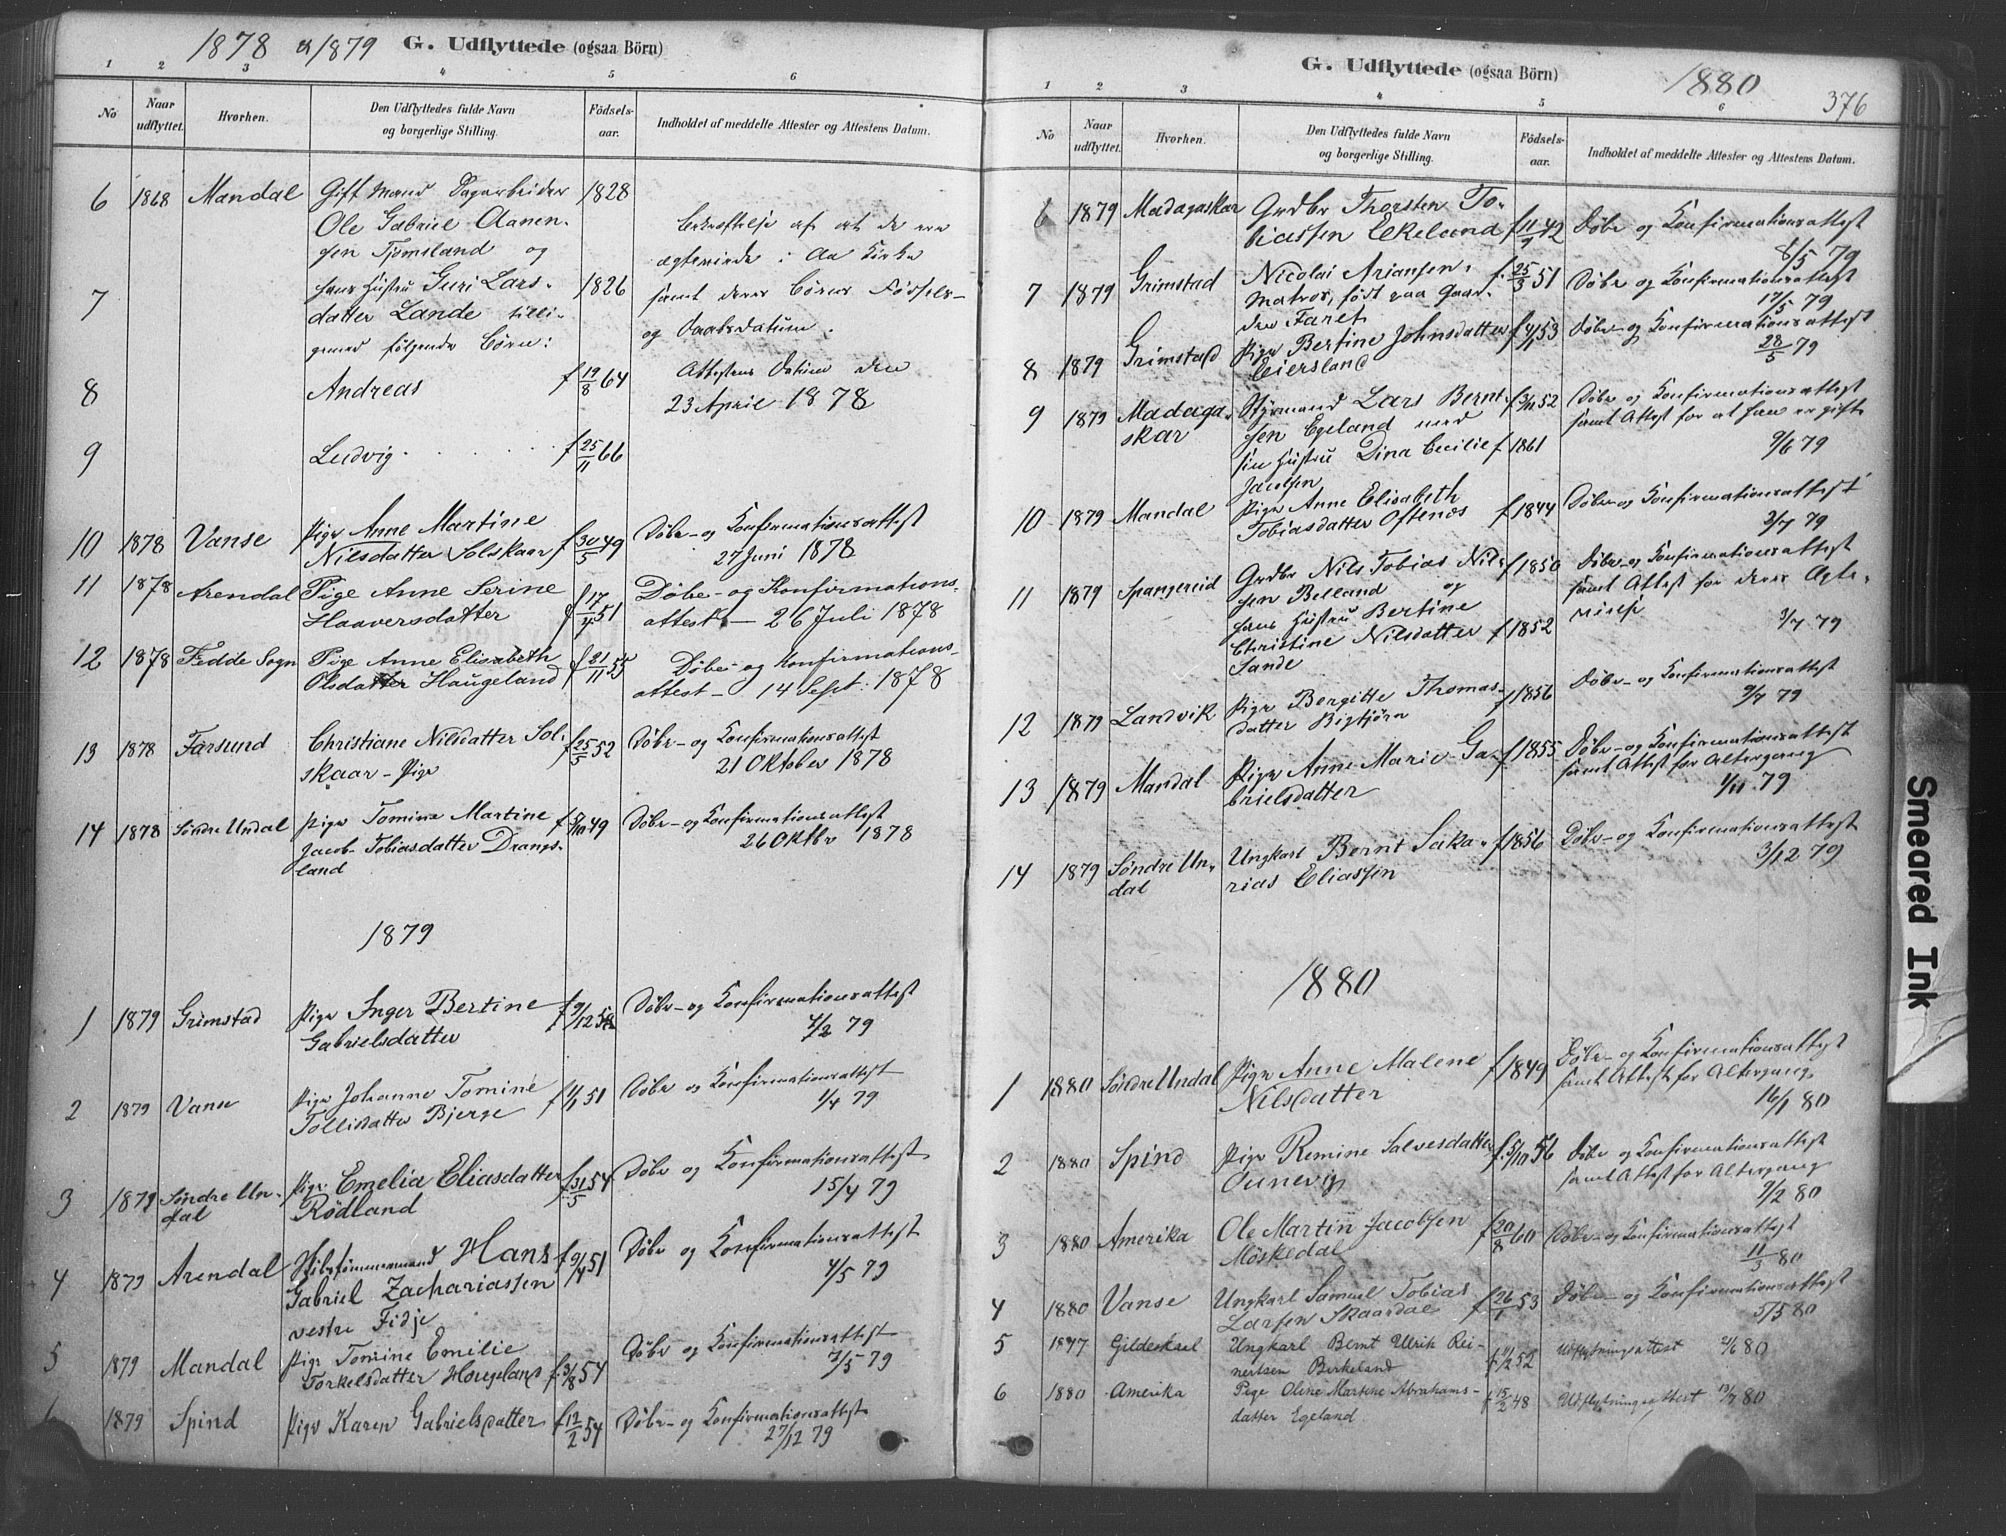 1878 & 1879 G. Udflyttede (ogsaa Börn)
1 2 3 4 5 6
No
Naar udflyttet.
Hvorhen.
Den Udflyttedes fulde Navn og borgerlige Stilling.
Födsels-aar.
Indholdet af meddelte Attester og Attestens Datum.
6 1868 Mandal Gift Mand Dagarbeider 1828
Ole Gabriel Aanen-
sen Tjomsland og
7 hans Hustru Guri Lars- 1826
datter Lande tilli-
gemed følgende Börn:
Bekræftelse af at de ere
ægteviede i Aa Kirke
samt deres Börns Fødsels-
og Daabsdatum.
Attestens Datum den
23 April 1878
8 Andreas f 19/8 64
9 Ludvig f 25/11 66
10 1878 Vanse Pige Anne Martine f 30/5 49 Döbe- og Konfirmationsattest
Nilsdatter Solskaar 27 Juni 1878
11 1878 Arendal Pige Anne Serine f 17/4 51 Döbe- og Konfirmations-
Haaversdatter attest - 26 Juli 1878
12 1878 Fedde Sogn Pige Anne Elisabeth f 21/11 55 Döbe- og Konfirmations-
Olsdatter Haugeland attest - 14 Sept. 1878
13 1878 Farsund Christiane Nilsdatter Sol- f 25/5 52 Döbe- og Konfirmationsattest
skaar - Pige 21 Oktober 1878
14 1878 Söndre Undal Pige Tomine Martine f 8/10 49 Döbe- og Konfirmationsattest
Jacob-Tobiasdatter Drangs- 26 Oktbr 1878
land
1879
1 1879 Grimstad Pige Inger Bertine f 9/12 58 Döbe- og Konfirmationsattest
Gabrielsdatter 4/2 79
2 1879 Vanse Pige Johanne Tomine f 1/1 51 Döbe og Konfirmationsattest
Tollisdatter Bjerge 1/4 79
3 1879 Söndre Un- Pige Emelia Eliasdatter f 31/5 54 Döbe og Konfirmationsattest
dal Rödland 15/4 79
4 1879 Arendal Skibstömmermand Hans f 9/4 51 Döbe og Konfirmationsattest
Gabriel Zachariassen 4/5 79
vestre Fidje
5 1879 Mandal Pige Tomine Emilie Döbe og Konfirmationsattest
Torkelsdatter Hougeland f 3/8 54 3/5 79
6 1879 Spind Pige Karen Gabrielsdatter f 12/2 54 Döbe- og Konfirmationsattest
27/12 79
G. Udflyttede (ogsaa Börn) 1880
376
1 2 3 4 5 6
No
Naar udflyttet.
Hvorhen.
Den Udflyttedes fulde Navn og borgerlige Stilling.
Födsels-aar.
Indholdet af meddelte Attester og Attestens Datum.
6 1879 Madagaskar Grdbr Thorsten To- Döbe og Konfirmationsattest
biassen Ekeland f 11/9 42 8/5 79
7 1879 Grimstad Nicolai Ariansen, f. 25/3 51 Döbe og Konfirmationsattest
Matros, født paa Gaar- 17/5 79
den Faret
8 1879 Grimstad Pige Bertine Johnsdatter f 4/1 53 Döbe og Konfirmationsattest
Eiersland 28/5 79
9 1879 Madaga- Styrmand Lars Bernt- f 3/11 52 Döbe og Konfirmationsattest
skar sen Egeland med samt Attest for at han er gift
sin Hustru Dina Cecilie f 1861 9/6 79
Jacobsen
10 1879 Mandal Pige Anne Elisabeth f 1844 Döbe og Konfirmationsattest
Tobiasdatter Oftenæs 3/7 79
11 1879 Spangereid Grdbr Nils Tobias Nil- f 1850 Döbe og Konfirmationsattest
sen Belland og samt Attest for deres Ægte-
hans Hustru Bertine vielse
Christine Nilsdatter f 1852 3/7 79
Sande
12 1879 Landvik Pige Bergitte Thomas- f 1856 Döbe- og Konfirmationsattest
datter Bigtjörn 9/7 79
13 1879 Mandal Pige Anne Marie Ga- f 1855 Döbe- og Konfirmationsattest
brielsdatter samt Attest for Altergang
1/11 79
14 1879 Söndre Un- Ungkarl Bernt Saka- f 1856 Döbe- og Konfirmationsattest
dal rias Eliassen 3/12 79
1880
1 1880 Söndre Undal Pige Anne Malene f 1849 Döbe- og Konfirmationsattest
Nilsdatter samt Attest for Altergang
16/1 80
2 1880 Spind Pige Remine Salvesdatter f. 5/10 56 Döbe og Konfirmationsattest
Dunevig samt Attest for Altergang
9/2 80
3 1880 Amerika Ole Martin Jacobsen f 20/8 60 Döbe- og Konfirmationsattest
Möskedal 11/3 80
4 1880 Vanse Ungkarl Samuel Tobias f 26/1 53 Döbe- og Konfirmationsattest
Larsen Skaardal 5/5 80
5 1877 Gildeskaal Ungkarl Bernt Ulrik Rei- f 11/2 52 Udflytningsattest 21/6 80
nertsen Birkeland
6 1880 Amerika Pige Oline Martine Abrahams- f 15/2 48 Udflytningsattest 13/7 80
datter Egeland
Smeared Ink